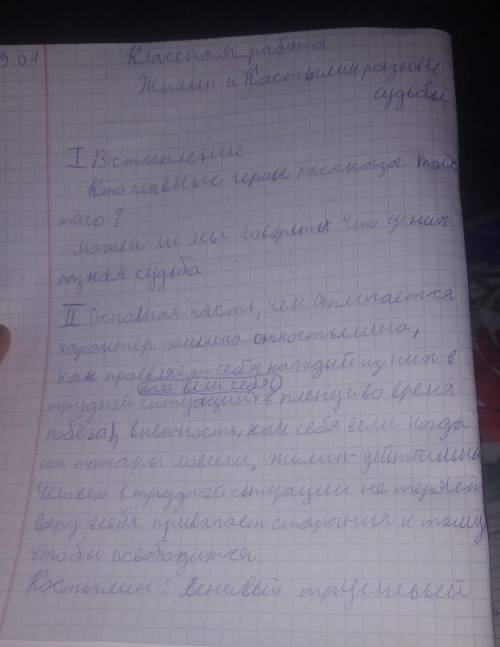 9.01
Классная работа
Жилин и Костылин разные
судьбы
I Вступление
Кто главные герои рассказа Толс
того?
Можем ли мы говорить что у них
разная судьба
II Основная часть, чем отличается
характер жилина от костылина,
как проявляет себя каждый из них в
как вели себя
трудной ситуации (в плену, во время
побега), внешность, как себя вели когда
их татары ловили, жилин-
человек в трудной ситуации не теряет
веру в себя прилагает старания к тому
чтобы освободится.
Костылин: ленивый трусливый